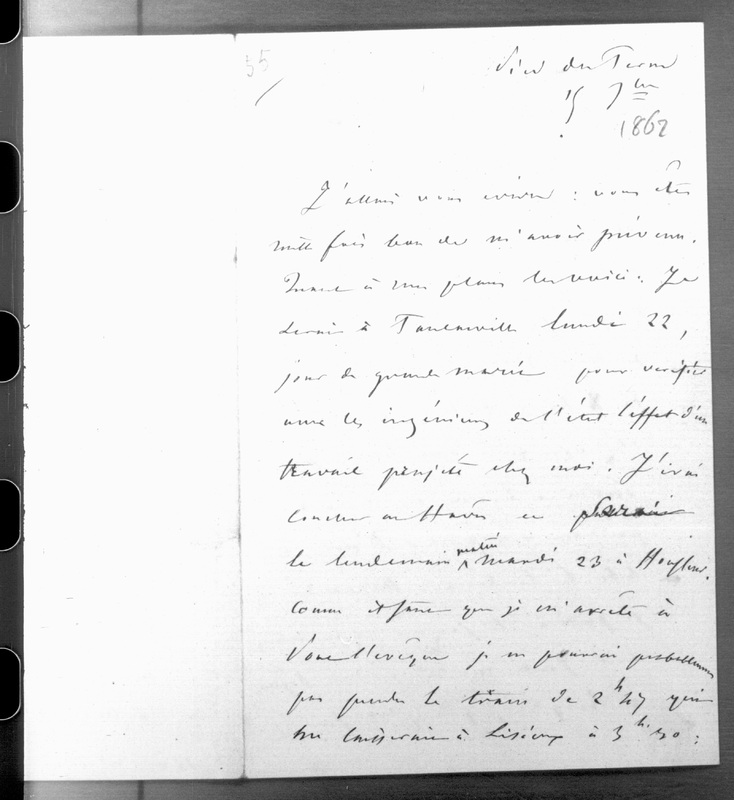 55
15 7bre
1862
J'allais vous écrire : vous êtes
mille fois bon de m'avoir prévenu.
Quant à mes plans les voici : Je
serai à Tancarville lundi 22,
jour de grande marée pour vérifier
avec les ingénieurs de l'état l'effet d'un
travail projeté chez moi. J'irai
coucher au Havre et serai
le lendemain matin mardi 23 à Honfleur.
Comme il faut que je m'arrête à
Pont l'évêque je ne pourrai probablement
pas prendre le train de 2h 47 qui
me laisserait à Lisieux à 3h 50 :